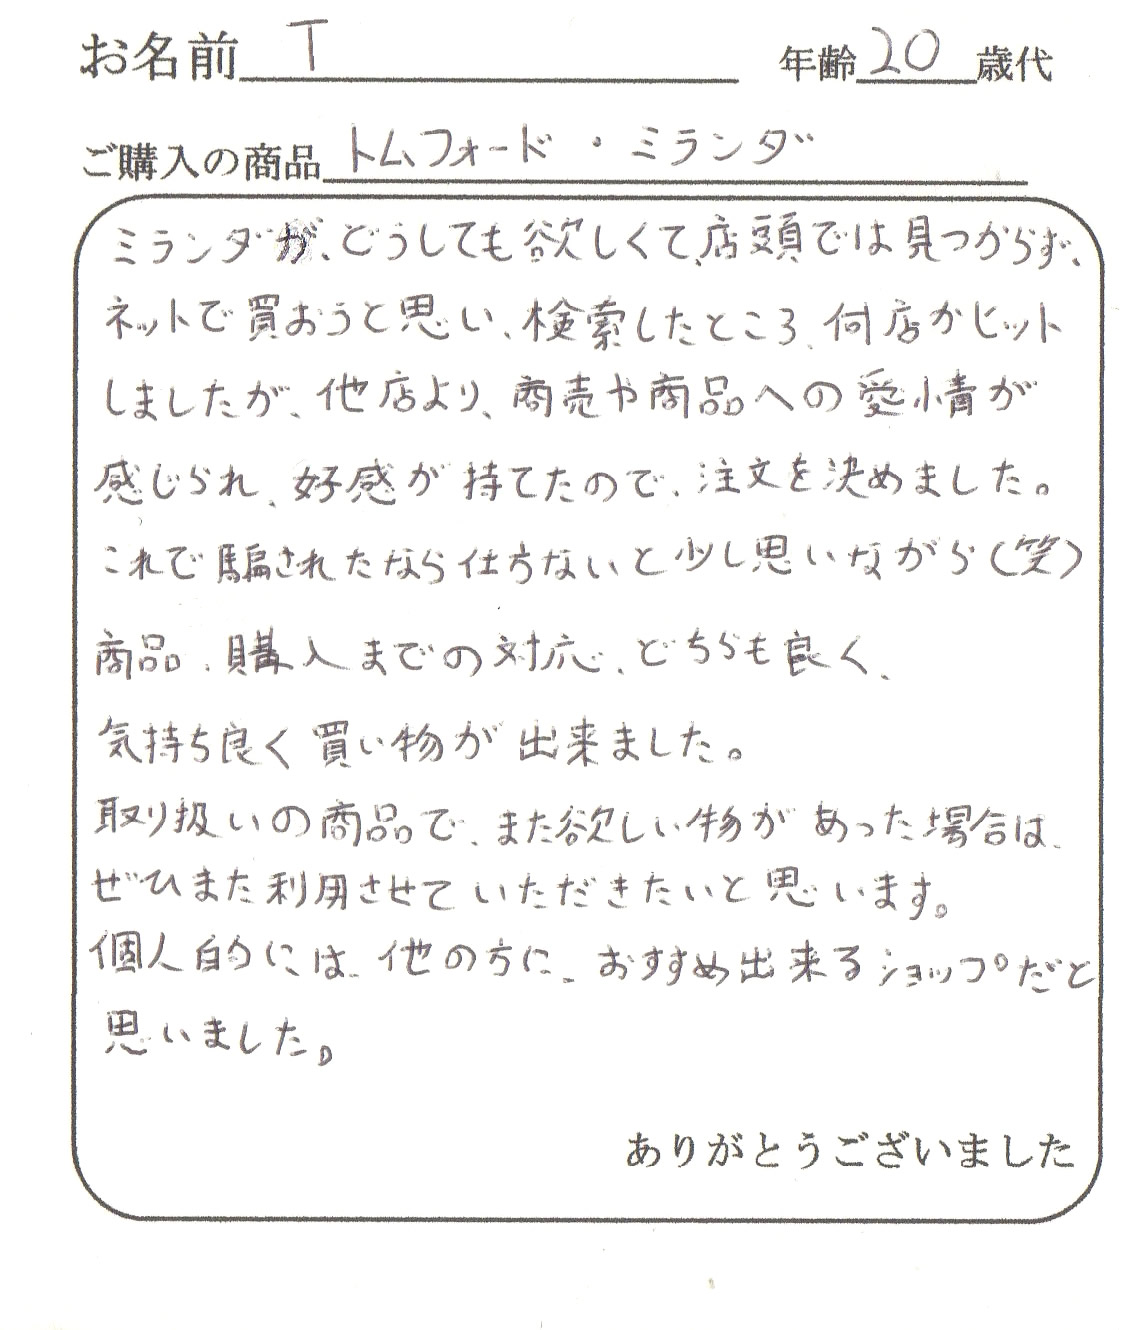 お名前 T 年齢 20 歳代
ご購入の商品 トムフォード・ミランダ
ミランダが、どうしても欲しくて、店頭では見つからず、
ネットで買おうと思い、検索したところ、何店かヒット
しましたが、他店より、商売や商品への愛情が
感じられ、好感が持てたので、注文を決めました。
これで騙されたなら仕方ないと少し思いながら(笑)
商品、購入までの対応、どちらも良く、
気持ち良く買い物が出来ました。
取り扱いの商品で、また欲しい物があった場合は、
ぜひまた利用させていただきたいと思います。
個人的には、他の方に、おすすめ出来るショップだと
思いました。
ありがとうございました